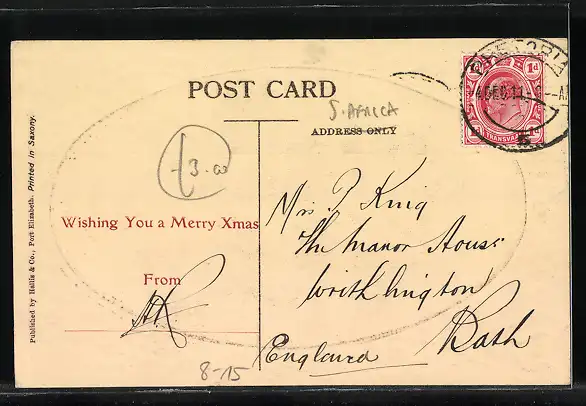 POST CARD
S. AFRICA
ADDRESS ONLY
PRETORIA
4 DEC 11
1d 1d
TRANSVAAL
3.00
Wishing You a Merry Xmas
From
Mrs P King
The Manor House
Writhlington
Bath
England
8-15
Published by Hallis & Co., Port Elizabeth. Printed in Saxony.